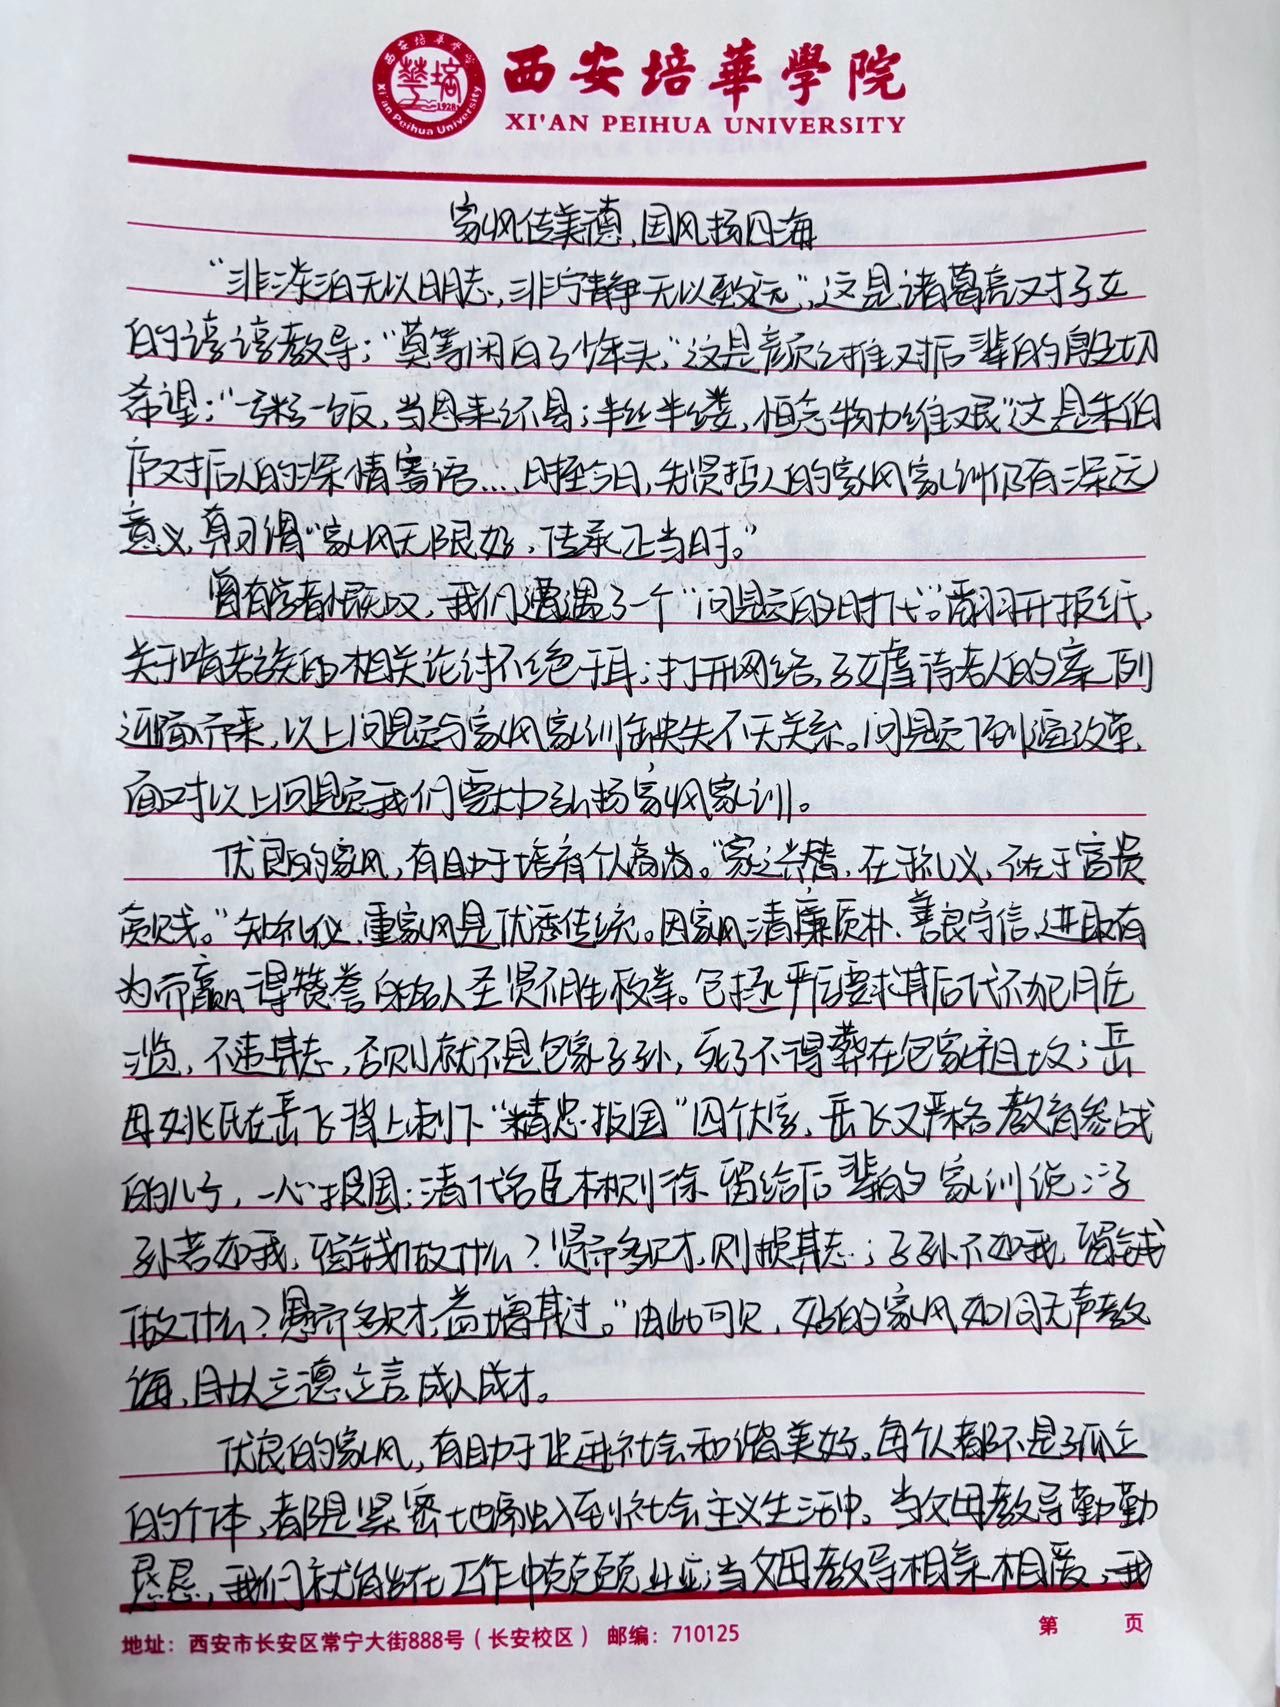 西安培華學院
XI'AN PEIHUA UNIVERSITY
西安培華學院
Xi'an Peihua University
1928
家风传美德，国风扬四海
“非淡泊无以明志，非宁静无以致远”，这是诸葛亮对子女
的谆谆教导；“莫等闲白了少年头，”这是颜之推对后辈的殷切
希望；“一粥一饭，当思来之不易；半丝半缕，恒念物力维艰”这是朱伯
庐对后人的深情寄语…．时至今日，先贤哲人的家风家训仍有深远
意义，真可谓“家风无限好，传承正当时。”
曾有学者慨叹，我们遭遇了一个“问题的时代”。翻开报纸，
关于啃老族的相关论讨不绝于耳；打开网络，子女虐待老人的案列
迎面而来，以上问题与家风家训缺失不无关系。问题倒逼改革，
面对以上问题我们要大力弘扬家风家训。
优良的家风，有助于培育个人高尚。“家之兴替，在于礼义，不在于富贵
贫贱。”知礼仪、重家风是优秀传统。因家风清廉质朴、善良守信、进取有
为而赢得赞誉的名人圣贤不胜枚举。包拯严厉要求其后代不犯
滥，不违其志，否则就不是包家子孙，死了不得葬在包家祖坟；岳
母姚氏在岳飞背上刺下“精忠报国”四个大字，岳飞又严格教育参战
的儿子，一心报国；清代名臣林则徐留给后辈的家训说：子
孙若如我，留钱做什么？贤而多财，则损其志；子孙不如我，留钱
做什么？愚而多财，益增其过。”由此可见，好的家风如同无声教
诲，助人立德立言成人成才。
优良的家风，有助于促进社会和谐美好。每个人都不是孤立
的个体，都是紧密地融入到社会主义生活中，当父母教导勤勤
恳恳，我们就能在工作中兢兢业业；当父母教导相亲相爱，我
地址：西安市长安区常宁大街888号（长安校区） 邮编：710125
第 页